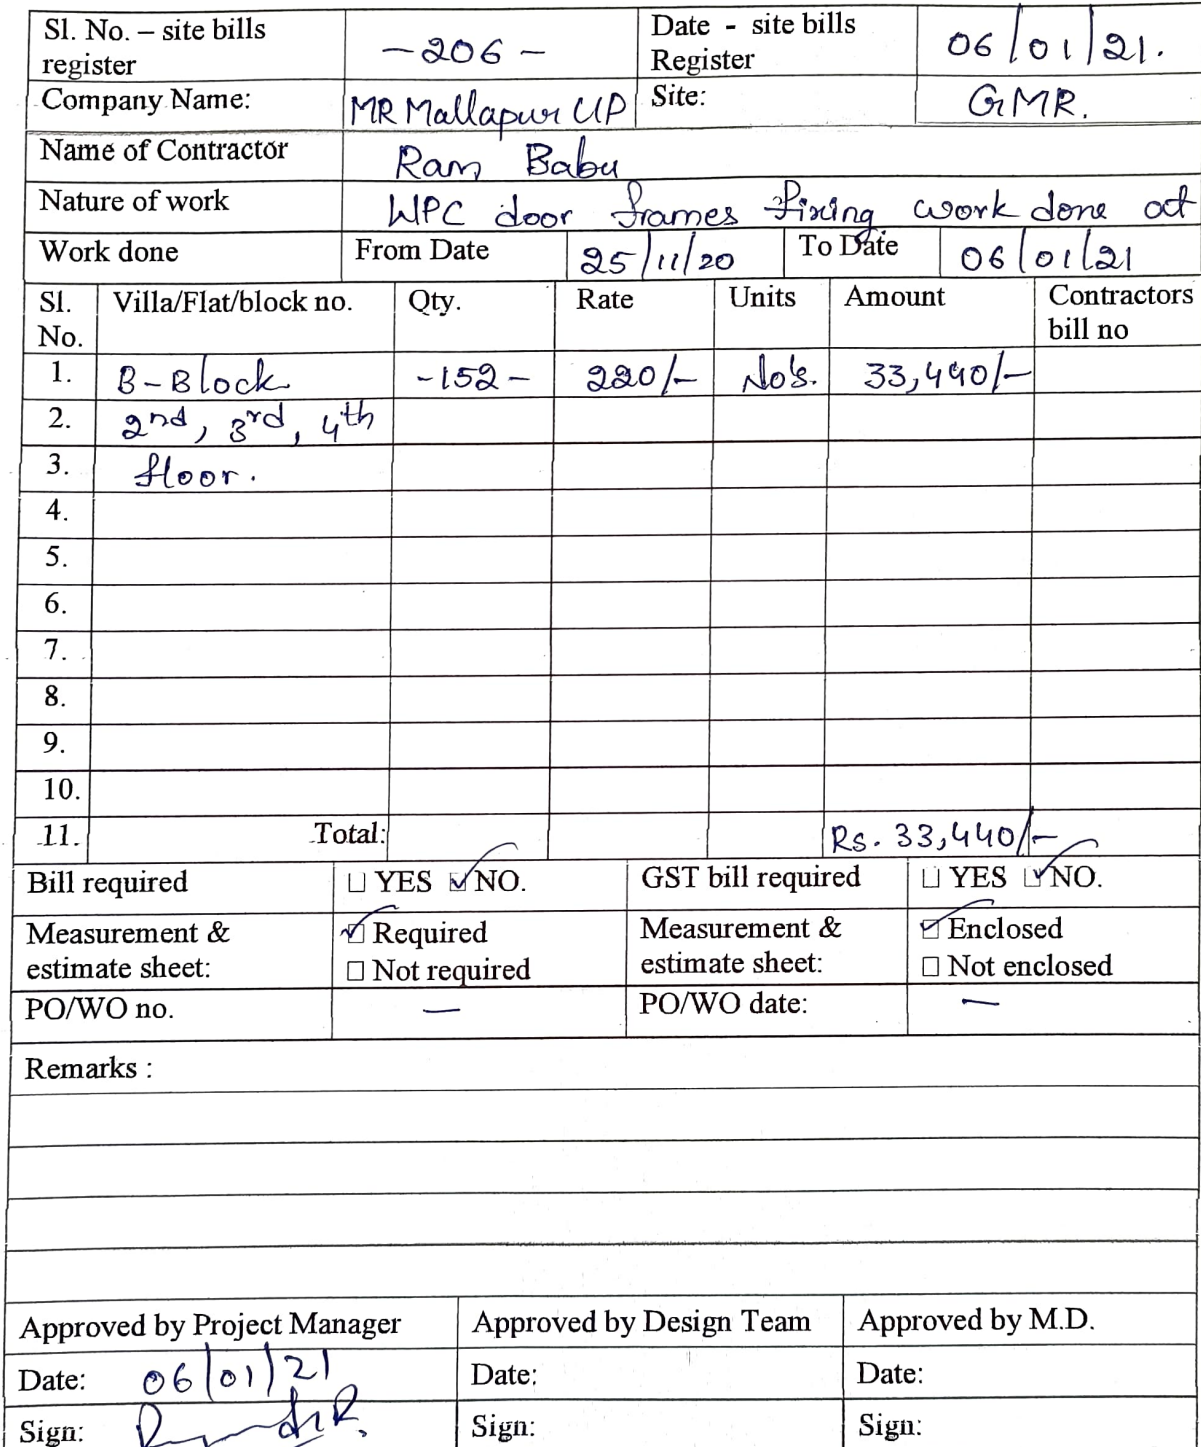 Sl. No. – site bills register -206- Date - site bills Register 06/01/21.
Company Name: MR Mallapur UP Site: GMR.
Name of Contractor Ram Babu
Nature of work WPC door frames fixing work done at
Work done From Date 25/11/20 To Date 06/01/21
Sl. No. Villa/Flat/block no. Qty. Rate Units Amount Contractors bill no
1. B-Block -152- 220/- No's. 33,440/-
2. 2nd, 3rd, 4th
3. floor.
4.
5.
6.
7.
8.
9.
10.
11. Total: Rs. 33,440/-
Bill required ☐ YES ☑ NO. GST bill required ☐ YES ☑ NO.
Measurement & estimate sheet: ☑ Required ☐ Not required Measurement & estimate sheet: ☑ Enclosed ☐ Not enclosed
PO/WO no. — PO/WO date: —
Remarks :
Approved by Project Manager Approved by Design Team Approved by M.D.
Date: 06/01/21 Date: Date:
Sign: Sign: Sign: